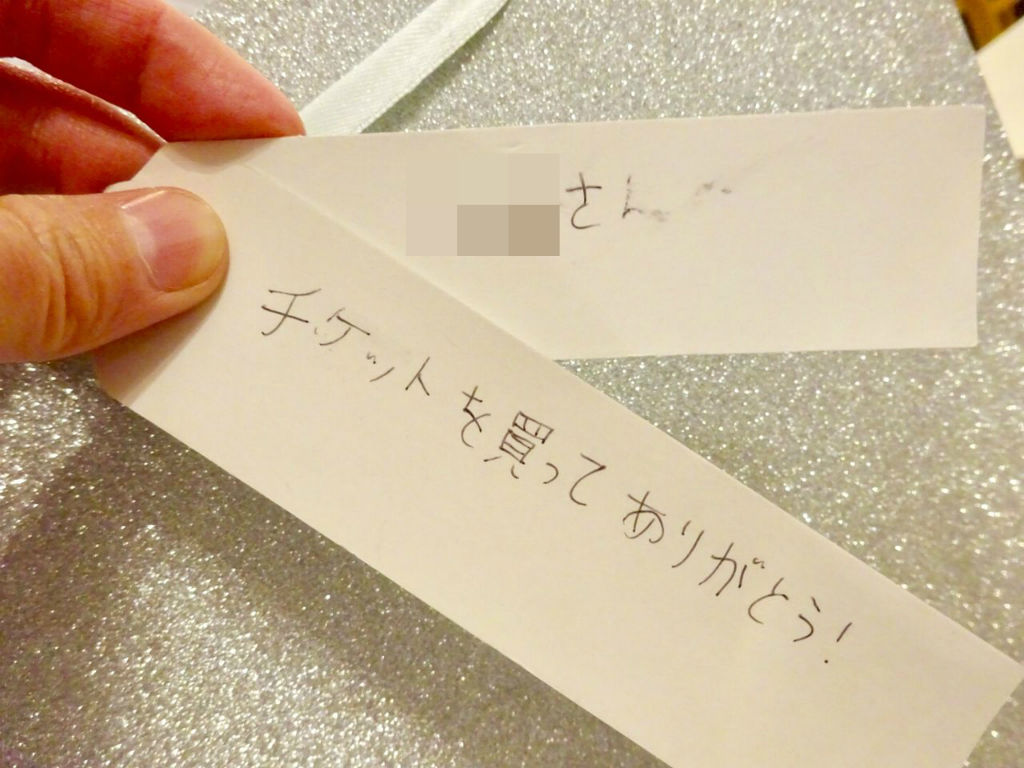 さん
チケットを買ってありがとう!